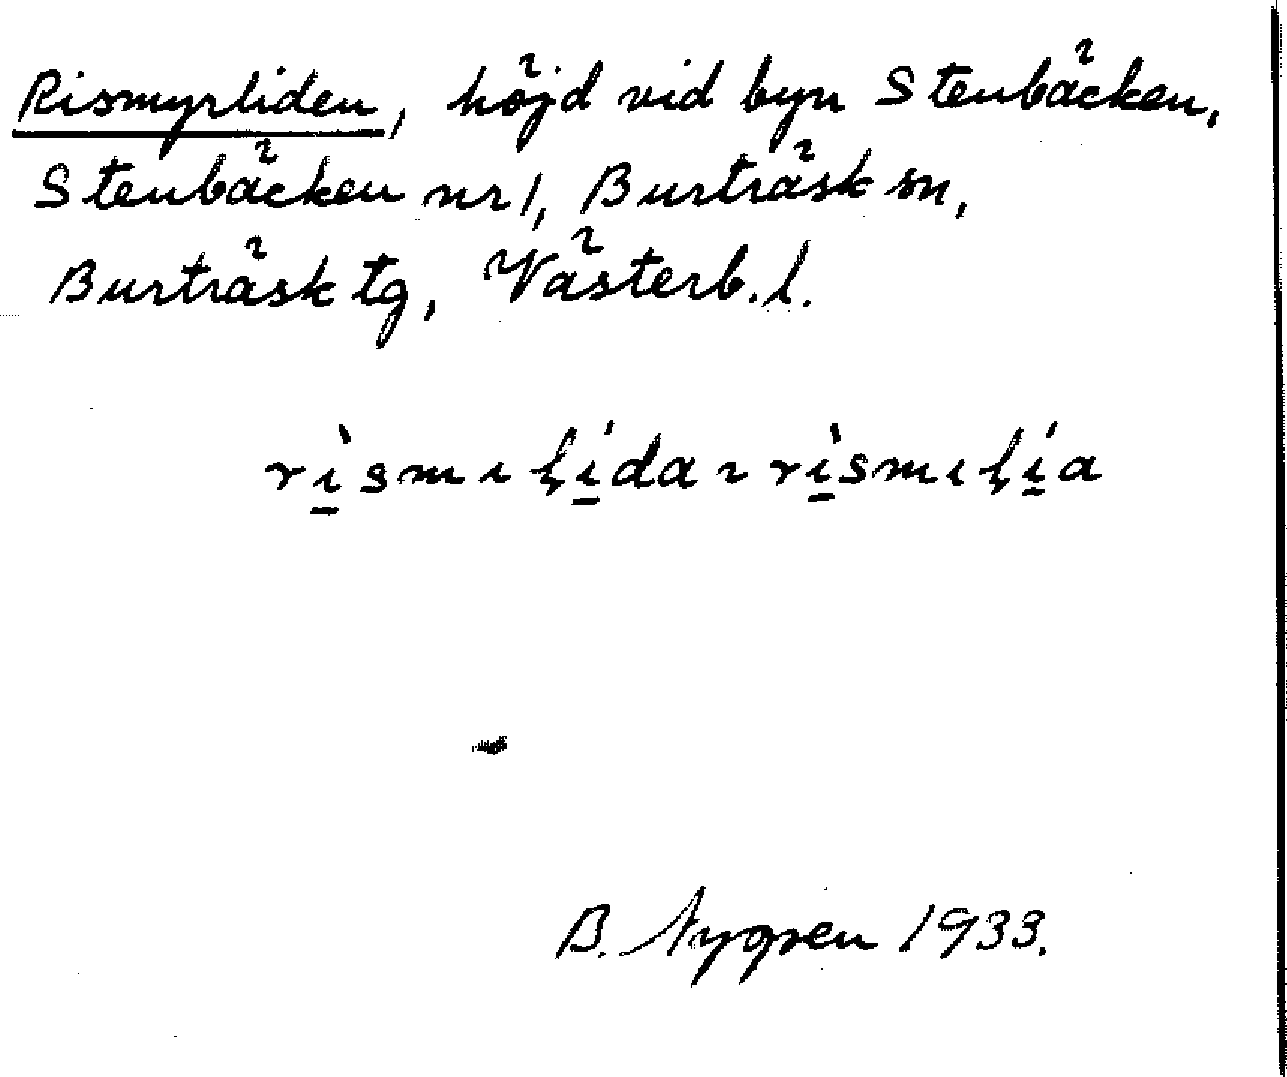 Rismyrliden, höjd vid byn Stenbäcken,
Stenbäcken nr 1, Burträsk sn,
Burträsk tg, Västerb. l.
rì̱smı ḷí̱da ~ rì̱smı ḷí̱a
B. Nygren 1933.